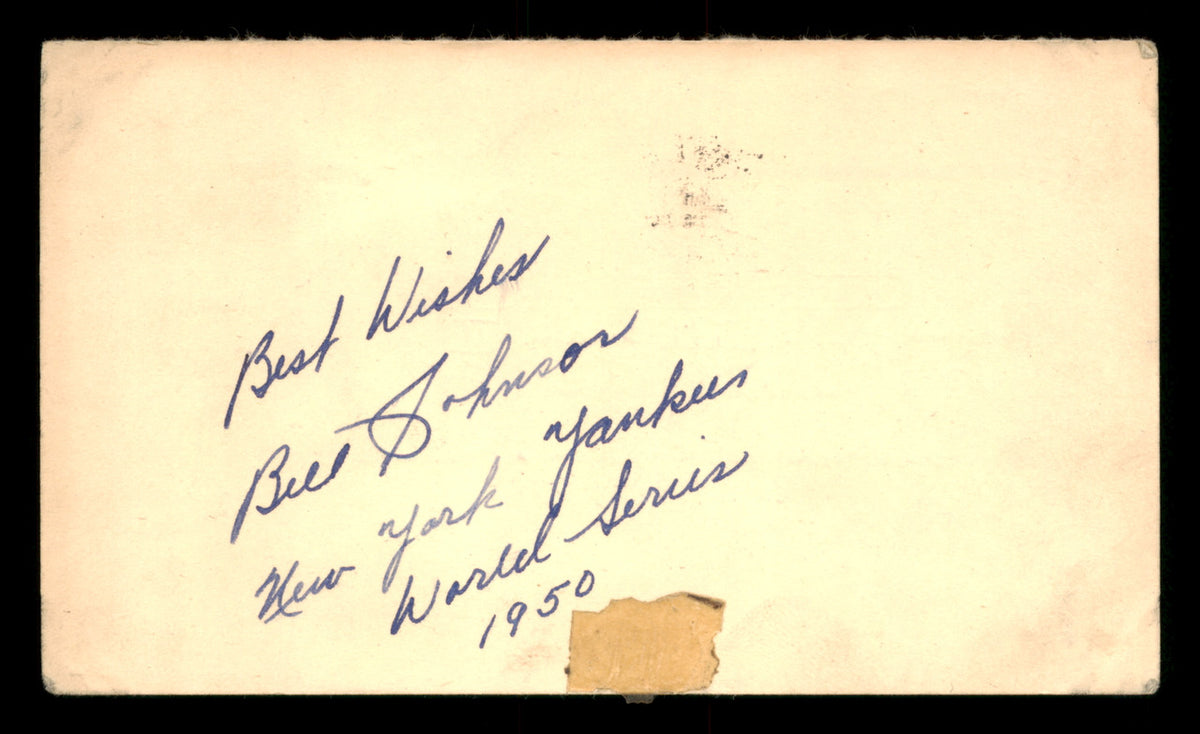 Best Wishes
Bill Johnson
New York Yankees
World Series
1950